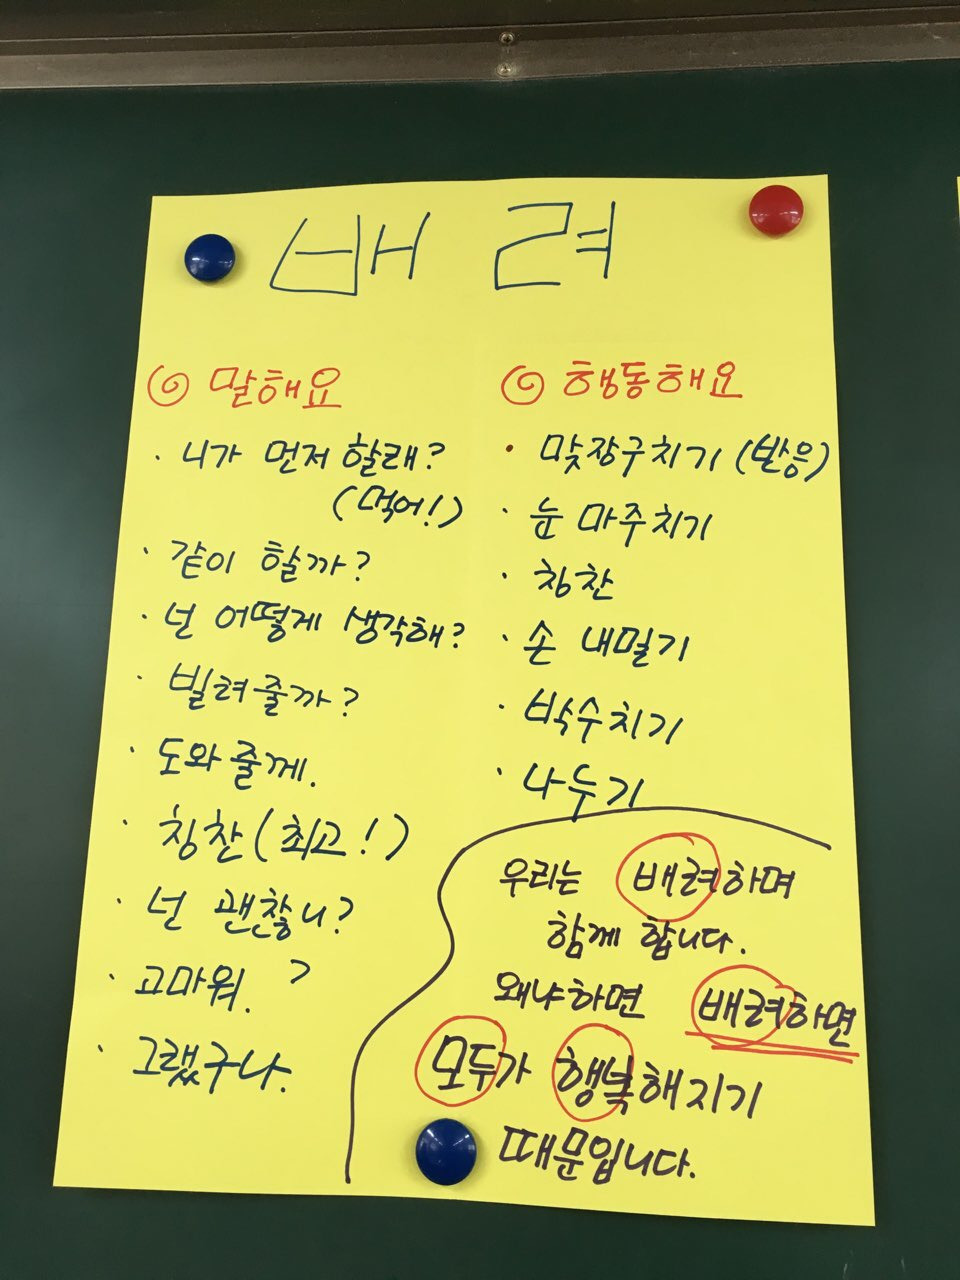 배려
말해요
· 니가 먼저 할래?
(먹어!)
· 같이 할까?
· 넌 어떻게 생각해?
· 빌려줄까?
· 도와줄께.
· 칭찬(최고!)
· 넌 괜찮니?
· 고마워. ?
· 그랬구나.
행동해요
· 맞장구치기 (반응)
· 눈 마주치기
· 칭찬
· 손 내밀기
· 박수치기
· 나누기
우리는 배려하며
함께 합니다.
왜냐하면 배려하면
모두가 행복해지기
때문입니다.